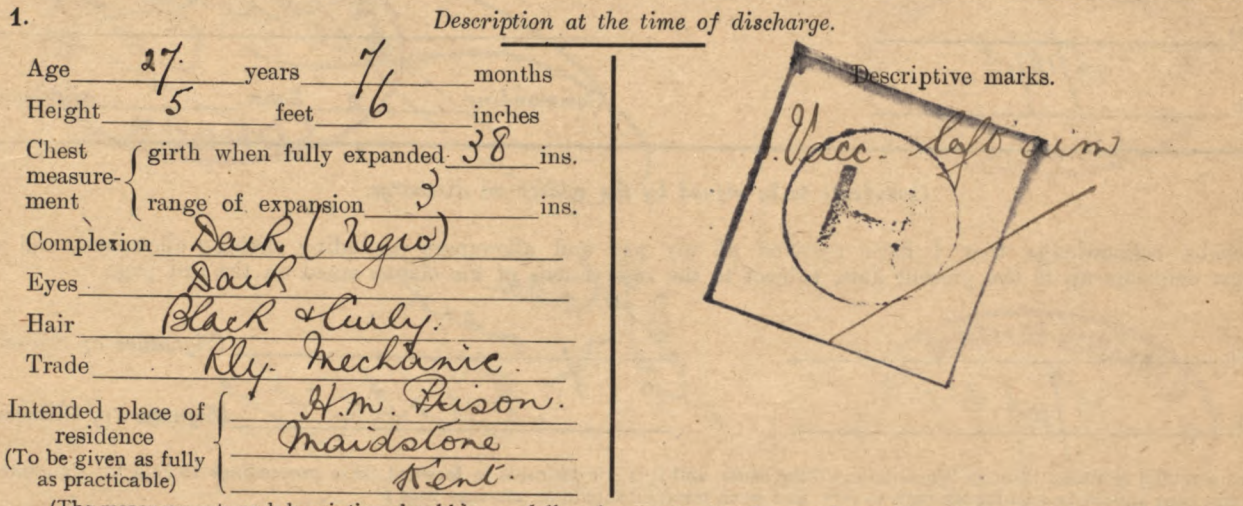 1.
Description at the time of discharge.
Age 27 years 7 months
Height 5 feet 6 inches
Chest measure- ment { girth when fully expanded 38 ins.
range of expansion 3 ins.
Complexion Dark (Negro)
Eyes Dark
Hair Black & Curly.
Trade Rly. Mechanic.
Intended place of residence (To be given as fully as practicable) { H.M. Prison.
Maidstone
Kent.
Descriptive marks.
Vacc. left arm
H